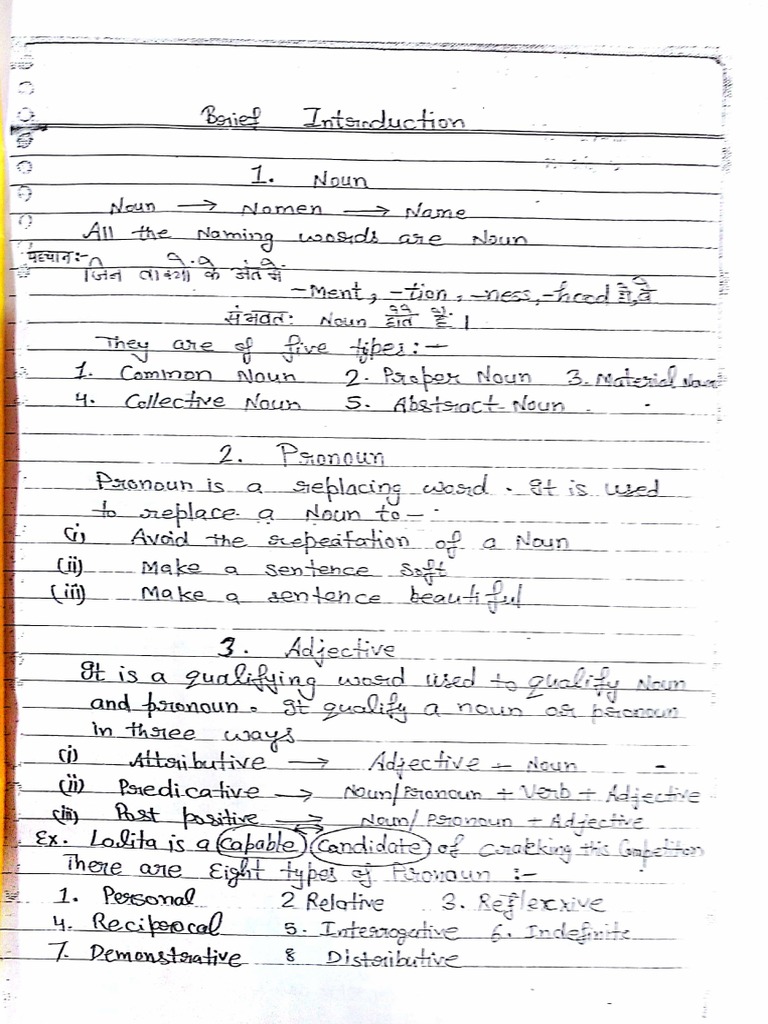 Brief Introduction
1. Noun
Noun → Nomen → Name
All the Naming words are Noun
पहचान:-
जिन वाक्यो के अंत में
-ment, -tion, -ness, -hood हो, वे
संभवत: Noun होते है।
They are of five types:-
1. Common Noun 2. Proper Noun 3. Material Noun
4. Collective Noun 5. Abstract Noun.
2. Pronoun
Pronoun is a replacing word. It is used
to replace a Noun to-
(i) Avoid the repeatation of a Noun
(ii) Make a sentence soft
(iii) Make a sentence beautiful
3. Adjective
It is a qualifying word used to qualify Noun
and pronoun. It qualify a noun or pronoun
in three ways
(i) Attributive → Adjective + Noun
(ii) Predicative → Noun/Pronoun + Verb + Adjective
(iii) Post positive → Noun/Pronoun + Adjective
Ex. Lolita is a capable candidate of crakking this Competition
There are Eight types of Pronoun :-
1. Personal 2 Relative 3. Reflexive
4. Reciprocal 5. Interrogative 6. Indefinite
7. Demonstrative 8 Distributive